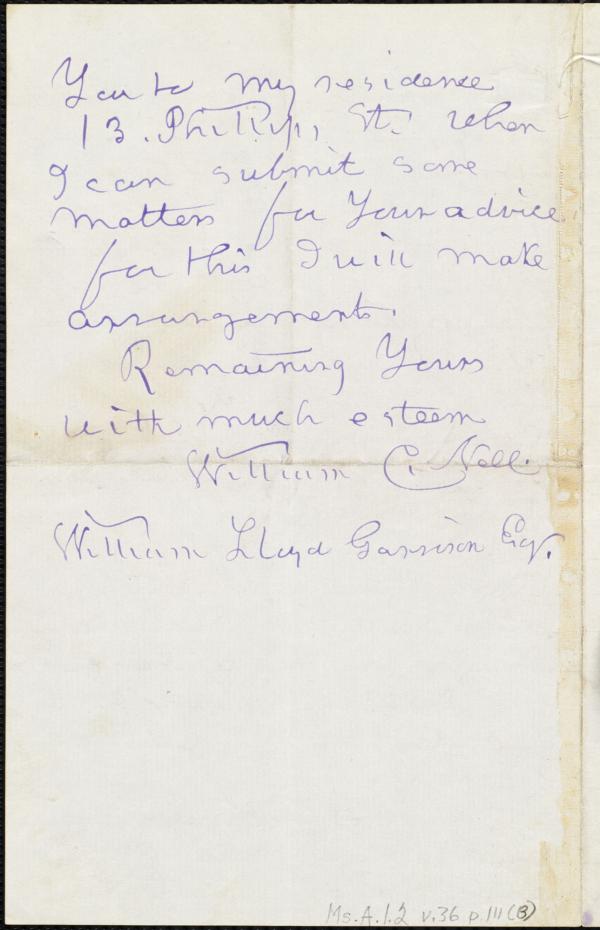 You to my residence
13. Phillips St. when
I can submit some
matters for Your advice.
for this I will make
arrangements.
Remaining Yours
with much esteem
William C. Nell.
William Lloyd Garrison Esq.
Ms.A.1.2 v.36 p.111(B)